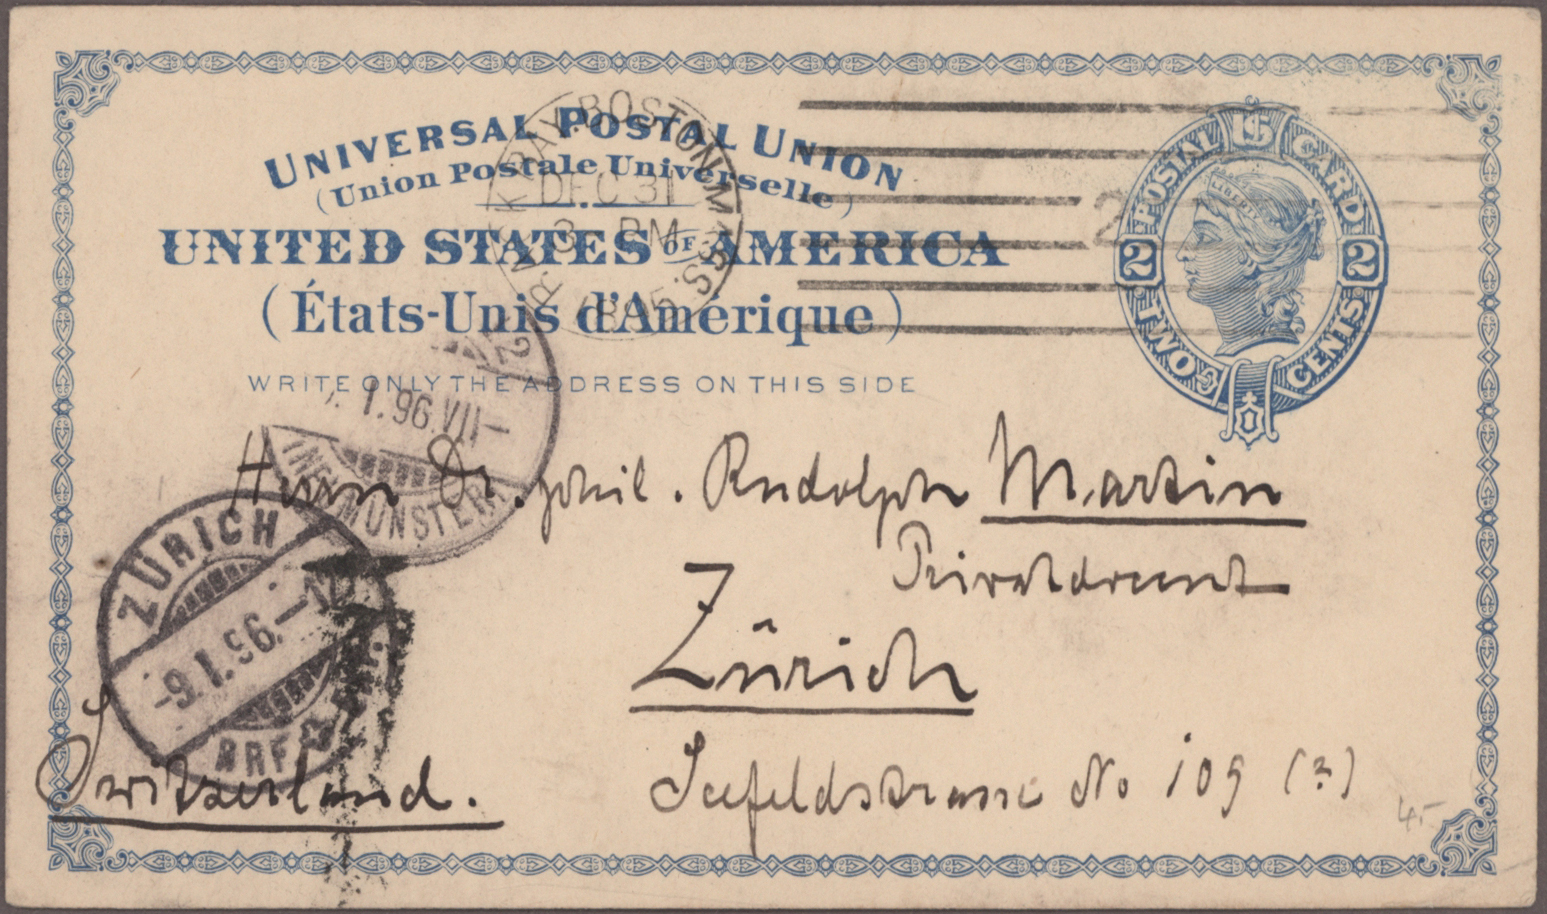 UNIVERSAL POSTAL UNION
(Union Postale Universelle)
UNITED STATES OF AMERICA
(États-Unis d'Amérique)
WRITE ONLY THE ADDRESS ON THIS SIDE
BACK BAY. BOSTON. MASS.
DEC 31
3 PM
1895
2
POSTAL CARD
US
2 2
TWO CENTS
LIBERTY
1.96.VII–
Herrn Dr. phil. Rudolph Martin
Privatdocent
Zürich
Seefeldstrasse No 109 (?)
Switzerland.
ZÜRICH
-9.1.96.–
BRF.
4.-